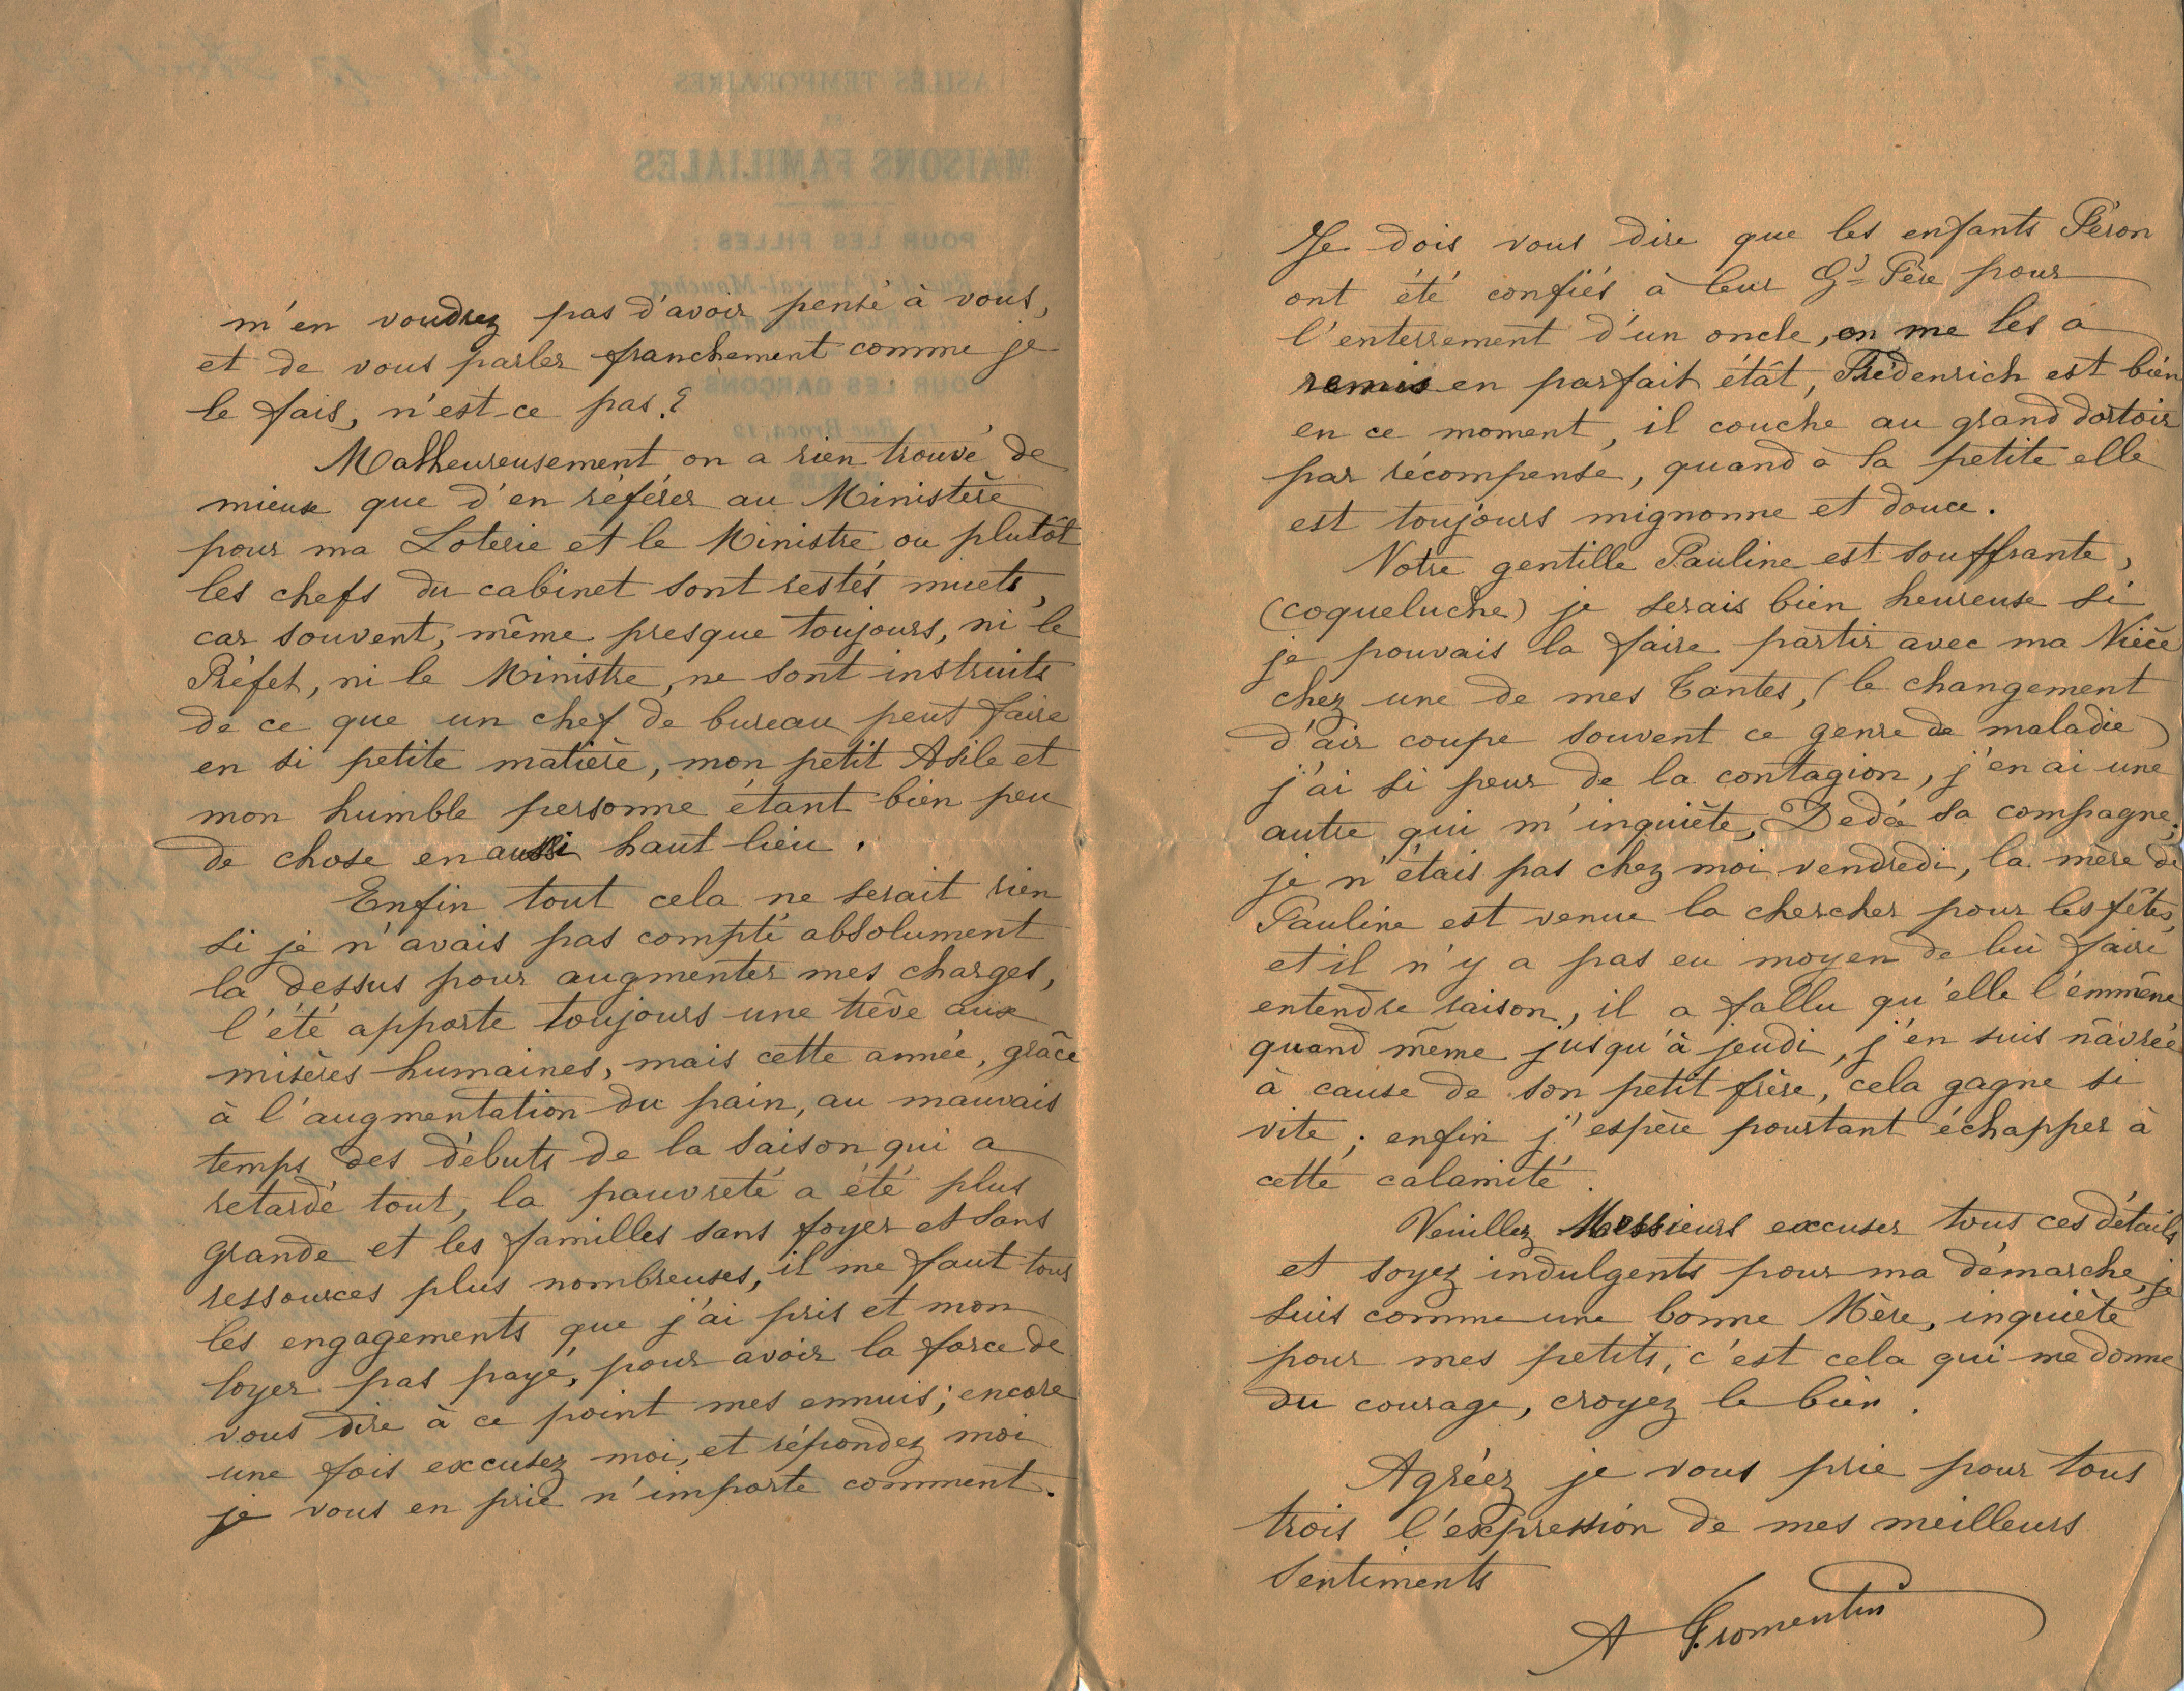 m'en voudrez pas d'avoir pensé à vous,
et de vous parler franchement comme je
le fais, n'est-ce pas?
Malheureusement on a rien trouvé de
mieux que d'en référer au Ministère
pour ma Loterie et le Ministre ou plutôt
les chefs du cabinet sont restés muets,
car souvent, même presque toujours, ni le
Préfet, ni le Ministre, ne sont instruits
de ce que un chef de bureau peut faire
en si petite matière, mon petit Asile et
mon humble personne étant bien peu
de chose en aussi haut lieu.
Enfin tout cela ne serait rien
si je n'avais pas compté absolument
la dessus pour augmenter mes charges,
l'été apporte toujours une trève aux
misères humaines, mais cette année, grâce
à l'augmentation du pain, au mauvais
temps des débuts de la saison qui a
retardé tout, la pauvreté a été plus
grande et les familles sans foyer et sans
ressources plus nombreuses, il me faut tous
les engagements que j'ai pris et mon
loyer pas payé, pour avoir la force de
vous dire à ce point mes ennuis; encore
une fois excusez moi, et répondez moi
je vous en prie n'importe comment.
Je dois vous dire que les enfants Péron
ont été confiés à leur Gd Père pour
l'enterrement d'un oncle, on me les a
remis en parfait étât, Frédenrich est bien
en ce moment, il couche au grand dortoir
par récompense, quand à la petite elle
est toujours mignonne et douce.
Notre gentille Pauline est souffrante,
(coqueluche) je serais bien heureuse si
je pouvais la faire partir avec ma Nièce
chez une de mes Tantes, (le changement
d'air coupe souvent ce genre de maladie)
j'ai si peur de la contagion, j'en ai une
autre qui m'inquiète, Dedée sa compagne;
je n'étais pas chez moi vendredi, la mère de
Pauline est venue la chercher pour les fêtes,
et il n'y a pas eu moyen de lui faire
entendre raison, il a fallu qu'elle l'emmène
quand même jusqu'à jeudi, j'en suis nâvrée
à cause de son petit frère, cela gagne si
vite; enfin j'espère pourtant échapper à
cette calamité.
Veuillez Messieurs excuser tous ces détails
et soyez indulgents pour ma démarche, je
suis comme une bonne Mère, inquiète
pour mes petits, c'est cela qui me donne
du courage, croyez le bien.
Agréez je vous prie pour tous
trois l'expression de mes meilleurs
Sentiments
A Fromentin
ASILES TEMPORAIRES
MAISONS FAMILIALES
POUR LES FILLES :
POUR LES GARÇONS